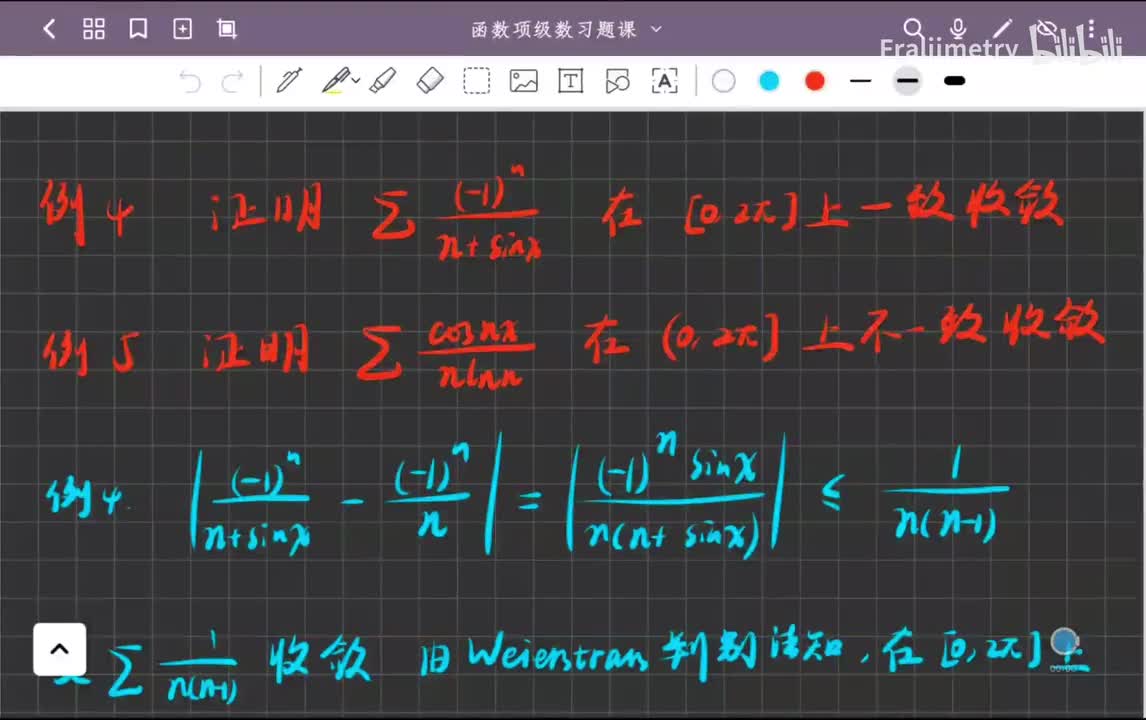 函数项级数习题课
Eraliimetry bilibili
例4 证明 ∑ (-1)^n / (n+sinx) 在 [0, 2π] 上一致收敛
例5 证明 ∑ cosnx / (nlnn) 在 (0, 2π] 上不一致收敛
例4. | (-1)^n / (n+sinx) - (-1)^n / n | = | (-1)^n sinx / (n(n+sinx)) | ≤ 1 / (n(n-1))
∑ 1 / (n(n-1)) 收敛 由 Weierstrass 判别法知, 在 [0, 2π] 上